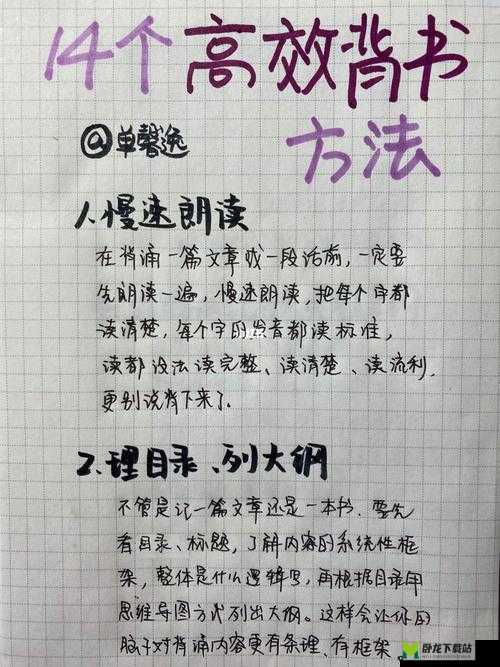 14个高效背书
方法
@单馨逸
1.慢速朗读
在背诵一篇文章或一段话前,一定要
先朗读一遍,慢速朗读,把每个字都
读清楚,每个字的发音都读标准,
读都没法读完整、读清楚、读流利,
更别说背下来了.
2.理目录、列大纲
不管是记一篇文章还是一本书,要先
看目录、标题,了解内容的系统性框
架,整体是什么逻辑写,再根据目录用
思维导图方式列出大纲。这样会让你的
脑子对背诵内容更有条理、有框架、
卧龙下载站